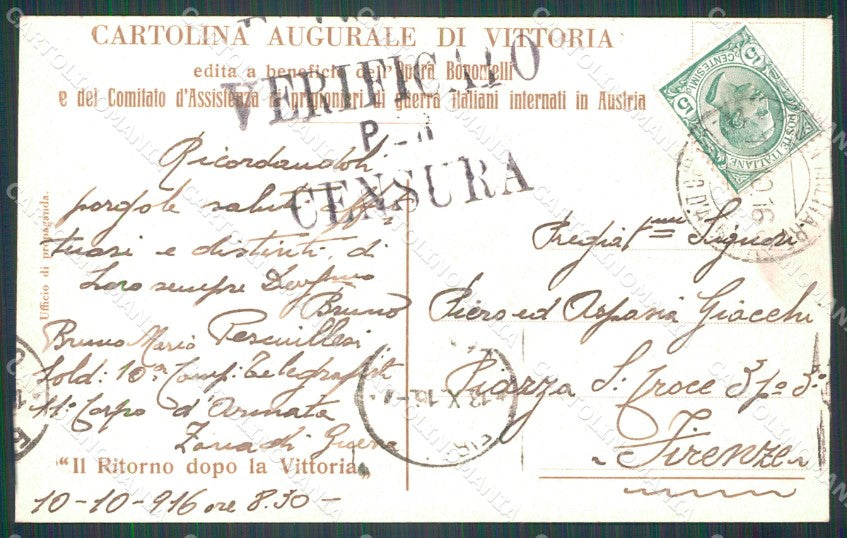 CARTOLINA AUGURALE DI VITTORIA
edita a beneficio dell'Opera Bonomelli
e del Comitato d'Assistenza ai prigionieri di guerra italiani internati in Austria
VERIFICATO
PER
CENSURA
POSTE ITALIANE
CENTESIMI 5
Ufficio di propaganda.
Ricordandoli
porgole saluti affet
tuosi e distinti, di
Loro sempre
Bruno
Bruno Mario
Sold: 10ª Comp: Telegrafisti
11º Corpo d'Armata
Zona di Guerra
"Il Ritorno dopo la Vittoria"
10-10-916 ore 8.30-
Pregiat.mi Signori
Piero ed Aspasia Giacchi
Piazza S: Croce 3 po 3º
Firenze
13 X 16